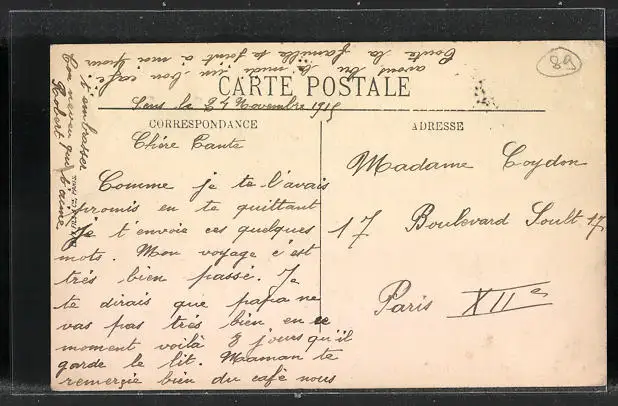 CARTE POSTALE
Sens le 24 Novembre 1915
CORRESPONDANCE
ADRESSE
Chère Tante
Comme je te l'avais
promis en te quittant
je t'envoie ces quelques
mots. Mon voyage c'est
très bien passé. Je
te dirais que papa ne
vas pas très bien en ce
moment voilà 3 jours qu'il
garde le lit. Maman te
remerçie bien du café nous
avons bu à midi un bon café
Toute la famille se joint à moi pour
t'embrasser
Ton neveu qui t'aime
Robert
Madame Coydon
17 Boulevard Soult 17
Paris XIIe
89